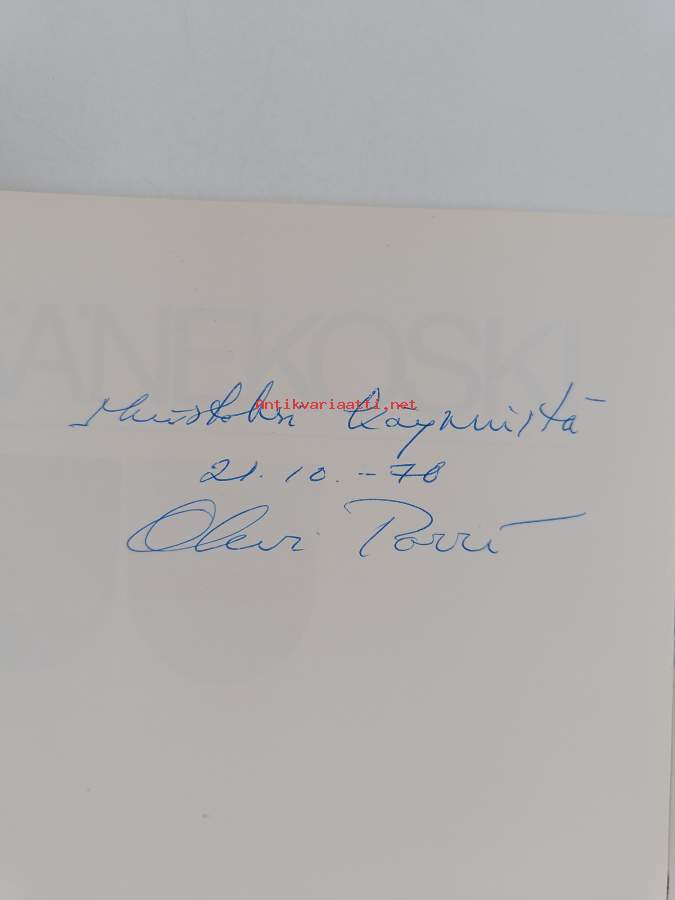 ÄNEKOSKI
Muistoksi käynnistä
Antikvariaatti.net
21.10.-78
Olavi Porri